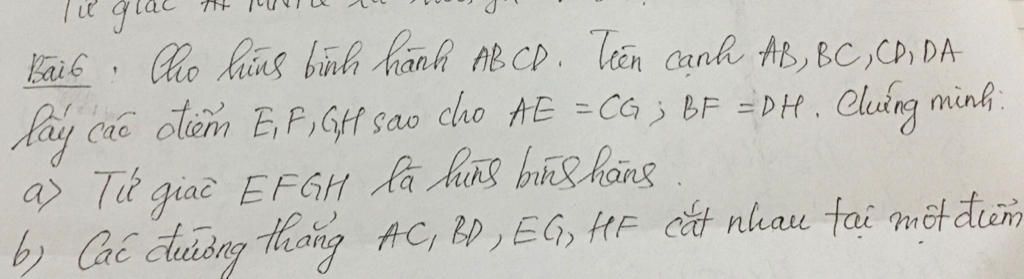 Tứ giác
Bài 6 : Cho hình bình hành ABCD. Trên cạnh AB, BC, CD, DA
lấy các điểm E, F, G, H sao cho AE = CG ; BF = DH. Chứng minh:
a) Tứ giác EFGH là hình bình hành.
b) Các đường thẳng AC, BD, EG, HF cắt nhau tại một điểm